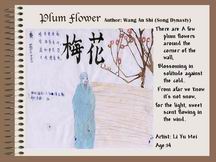 Plum Flower Author: Wang An Shi (Song Dynasty)
梅花
There are A few
plum flowers
around the
corner of the
wall,
Blossoming in
solitude against
the cold.
From afar we know
it's not snow,
for the light, sweet
scent flowing in
the wind.
Artist: Li Yu Mei
Age 14